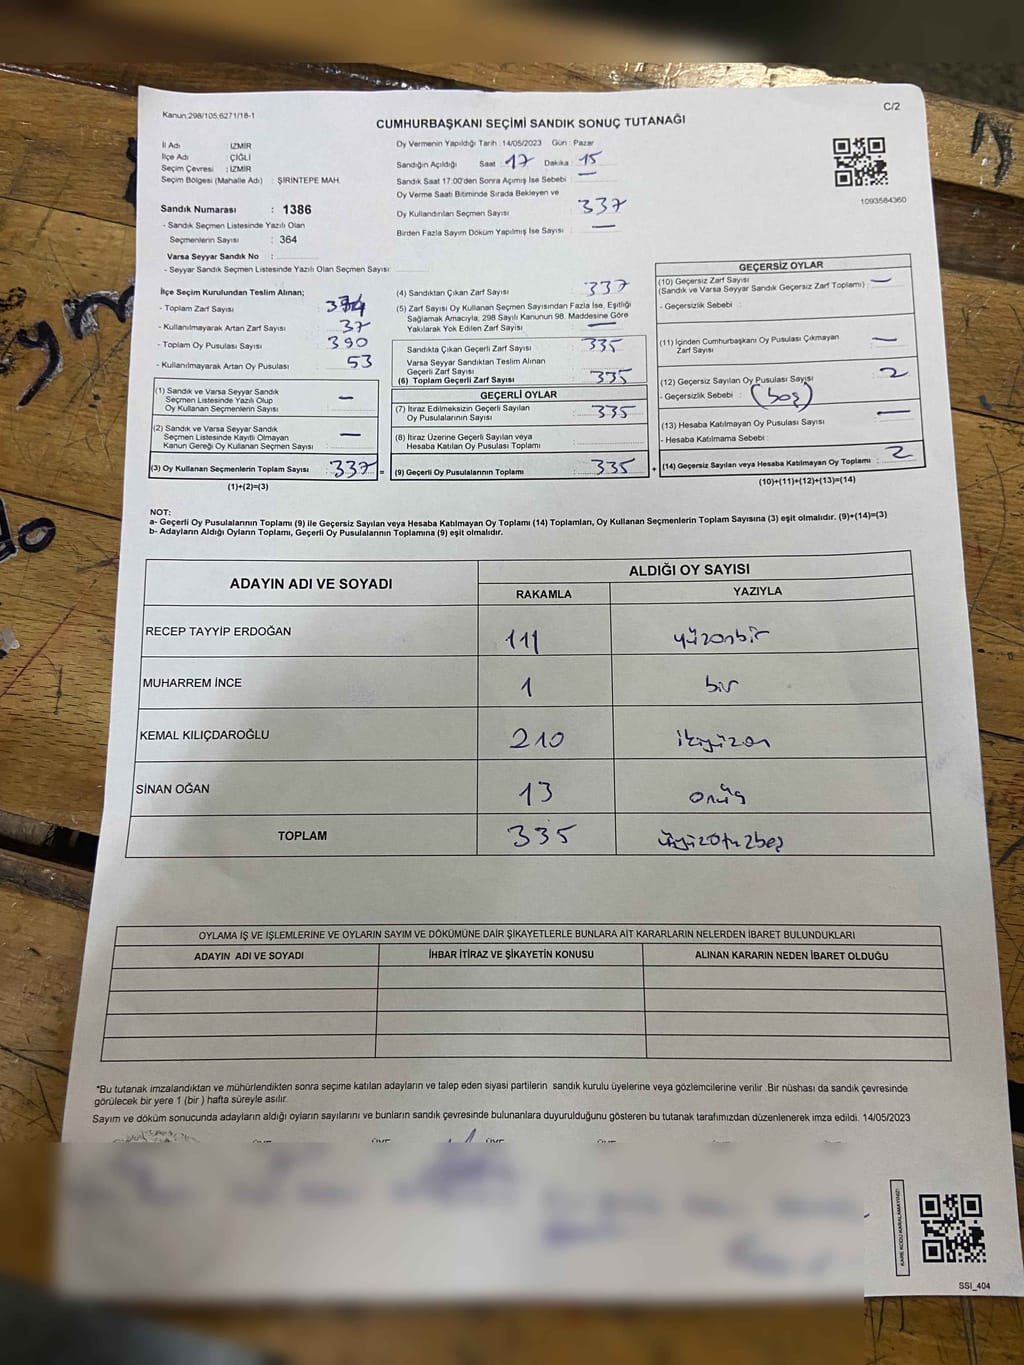 Kanun:298/105;6271/18-1
C/2
CUMHURBAŞKANI SEÇİMİ SANDIK SONUÇ TUTANAĞI
İl Adı : İZMİR
İlçe Adı : ÇİĞLİ
Seçim Çevresi : İZMİR
Seçim Bölgesi (Mahalle Adı) : ŞİRİNTEPE MAH.
Sandık Numarası : 1386
- Sandık Seçmen Listesinde Yazılı Olan
Seçmenlerin Sayısı : 364
Varsa Seyyar Sandık No :
- Seyyar Sandık Seçmen Listesinde Yazılı Olan Seçmen Sayısı
Oy Vermenin Yapıldığı Tarih : 14/05/2023 Gün : Pazar
Sandığın Açıldığı Saat : 17 Dakika : 15
Sandık Saat 17:00'den Sonra Açımış İse Sebebi : —
Oy Verme Saati Bitiminde Sırada Bekleyen ve
Oy Kullandırılan Seçmen Sayısı 337
Birden Fazla Sayım Döküm Yapılmış İse Sayısı : —
1093584360
İlçe Seçim Kurulundan Teslim Alınan;
- Toplam Zarf Sayısı :
- Kullanılmayarak Artan Zarf Sayısı : 37
- Toplam Oy Pusulası Sayısı : 390
- Kullanılmayarak Artan Oy Pusulası : 53
(1) Sandık ve Varsa Seyyar Sandık
Seçmen Listesinde Yazılı Olup
Oy Kullanan Seçmenlerin Sayısı : —
(2) Sandık ve Varsa Seyyar Sandık
Seçmen Listesinde Kayıtlı Olmayan
Kanun Gereği Oy Kullanan Seçmen Sayısı : —
(3) Oy Kullanan Seçmenlerin Toplam Sayısı : 337 =
(1)+(2)=(3)
(4) Sandıktan Çıkan Zarf Sayısı : 337
(5) Zarf Sayısı Oy Kullanan Seçmen Sayısından Fazla İse, Eşitliği
Sağlamak Amacıyla, 298 Sayılı Kanunun 98. Maddesine Göre
Yakılarak Yok Edilen Zarf Sayısı : —
Sandıkta Çıkan Geçerli Zarf Sayısı : 335
Varsa Seyyar Sandıktan Teslim Alınan
Geçerli Zarf Sayısı :
(6) Toplam Geçerli Zarf Sayısı : 335
GEÇERLİ OYLAR
(7) İtiraz Edilmeksizin Geçerli Sayılan
Oy Pusulalarının Sayısı : 335
(8) İtiraz Üzerine Geçerli Sayılan veya
Hesaba Katılan Oy Pusulası Toplamı :
(9) Geçerli Oy Pusulalarının Toplamı : 335 +
GEÇERSİZ OYLAR
(10) Geçersiz Zarf Sayısı
(Sandık ve Varsa Seyyar Sandık Geçersiz Zarf Toplamı) : —
- Geçersizlik Sebebi :
(11) İçinden Cumhurbaşkanı Oy Pusulası Çıkmayan
Zarf Sayısı : —
(12) Geçersiz Sayılan Oy Pusulası Sayısı : 2
- Geçersizlik Sebebi : (boş)
(13) Hesaba Katılmayan Oy Pusulası Sayısı : —
- Hesaba Katılmama Sebebi :
(14) Geçersiz Sayılan veya Hesaba Katılmayan Oy Toplamı : 2
(10)+(11)+(12)+(13)=(14)
NOT:
a- Geçerli Oy Pusulalarının Toplamı (9) ile Geçersiz Sayılan veya Hesaba Katılmayan Oy Toplamı (14) Toplamları, Oy Kullanan Seçmenlerin Toplam Sayısına (3) eşit olmalıdır. (9)+(14)=(3)
b- Adayların Aldığı Oyların Toplamı, Geçerli Oy Pusulalarının Toplamına (9) eşit olmalıdır.
ADAYIN ADI VE SOYADI
ALDIĞI OY SAYISI
RAKAMLA YAZIYLA
RECEP TAYYİP ERDOĞAN 111 yüzonbir
MUHARREM İNCE 1 bir
KEMAL KILIÇDAROĞLU 210 ikiyüzon
SİNAN OĞAN 13 onüç
TOPLAM 335 üçyüzotuzbeş
OYLAMA İŞ VE İŞLEMLERİNE VE OYLARIN SAYIM VE DÖKÜMÜNE DAİR ŞİKAYETLERLE BUNLARA AİT KARARLARIN NELERDEN İBARET BULUNDUKLARI
ADAYIN ADI VE SOYADI İHBAR İTİRAZ VE ŞİKAYETİN KONUSU ALINAN KARARIN NEDEN İBARET OLDUĞU
*Bu tutanak imzalandıktan ve mühürlendikten sonra seçime katılan adayların ve talep eden siyasi partilerin sandık kurulu üyelerine veya gözlemcilerine verilir .Bir nüshası da sandık çevresinde
görülecek bir yere 1 (bir ) hafta süreyle asılır.
Sayım ve döküm sonucunda adayların aldığı oyların sayılarını ve bunların sandık çevresinde bulunanlara duyurulduğunu gösteren bu tutanak tarafımızdan düzenlenerek imza edildi. 14/05/2023
KARE KODU KARALAMAYINIZ!
SSI_404